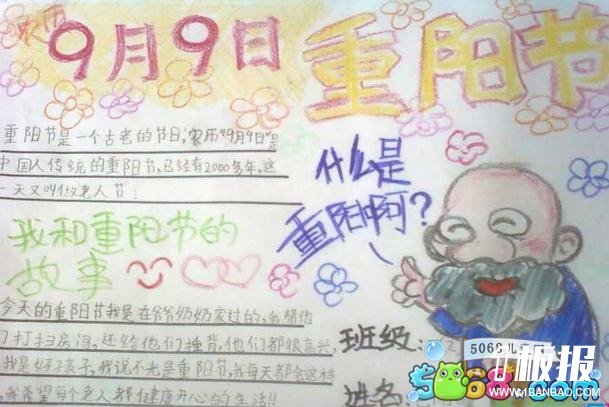 农历
9月9日 重阳节
重阳节是一个古老的节日,农历"9月9日"是
中国人传统的重阳节,已经有2000多年,这
一天又叫做老人节!
什么是
重阳啊?
我和重阳节的
故事
今天的重阳节我是在爷爷奶奶家过的,我帮他
们打扫房间,还给他们捶背,他们都很高兴,
我是好孩子,我说不光是重阳节,我每天都会这样
我希望每个老人都健康开心的生活!!
班级:
姓名
5068儿童网
板报
5068.com
WWW.1BANBAO.COM